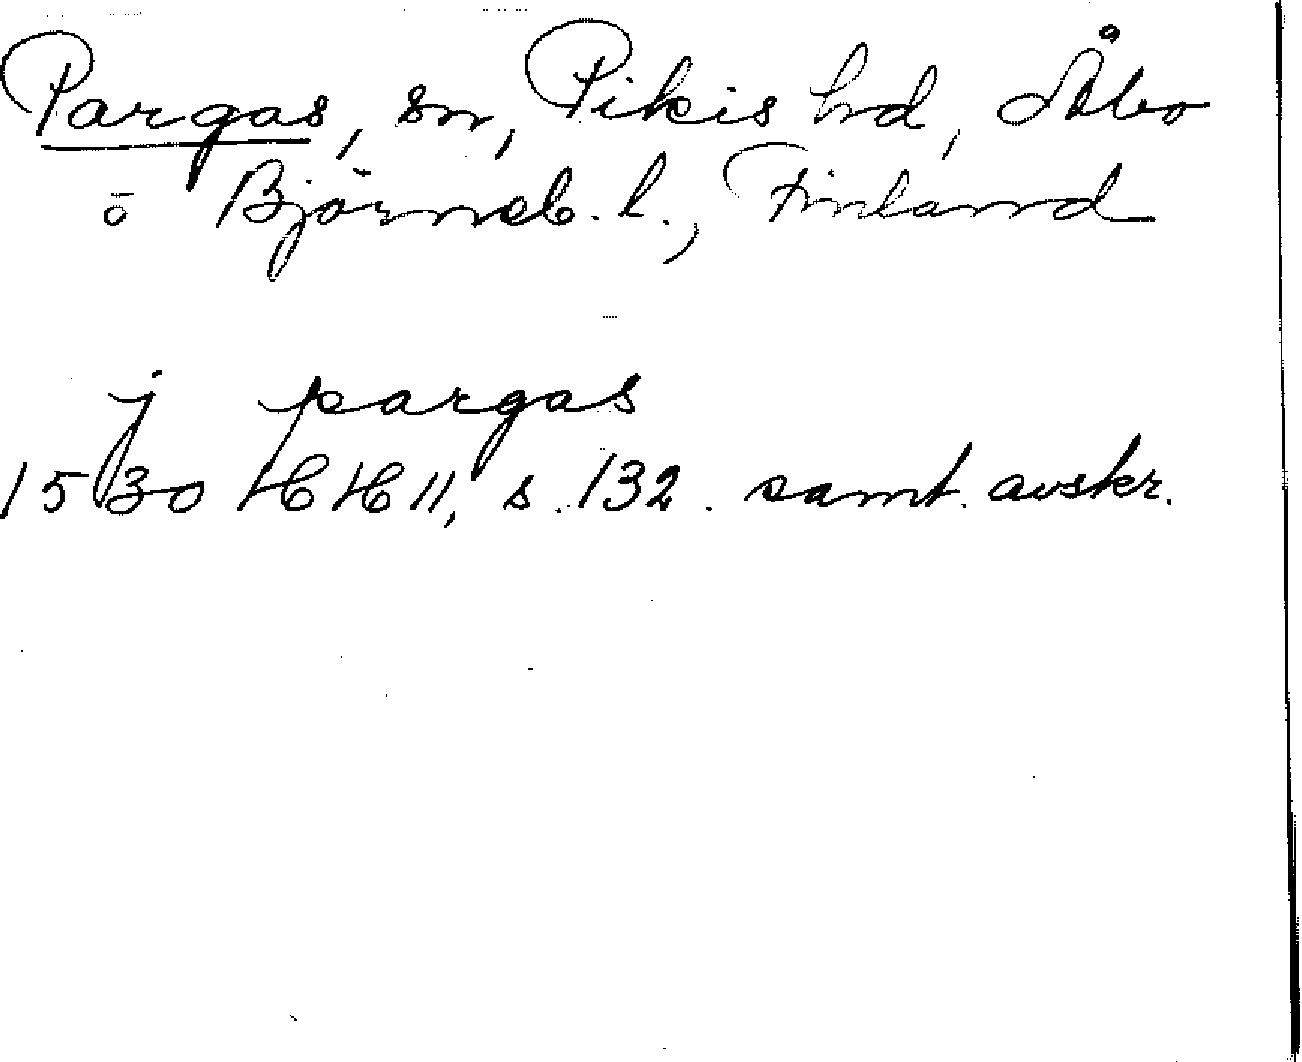 Pargas, sn, Pikis hd, Åbo
o Björneb. l., Finland
j pargas
1530 HH 11, s. 132. samt. avskr.